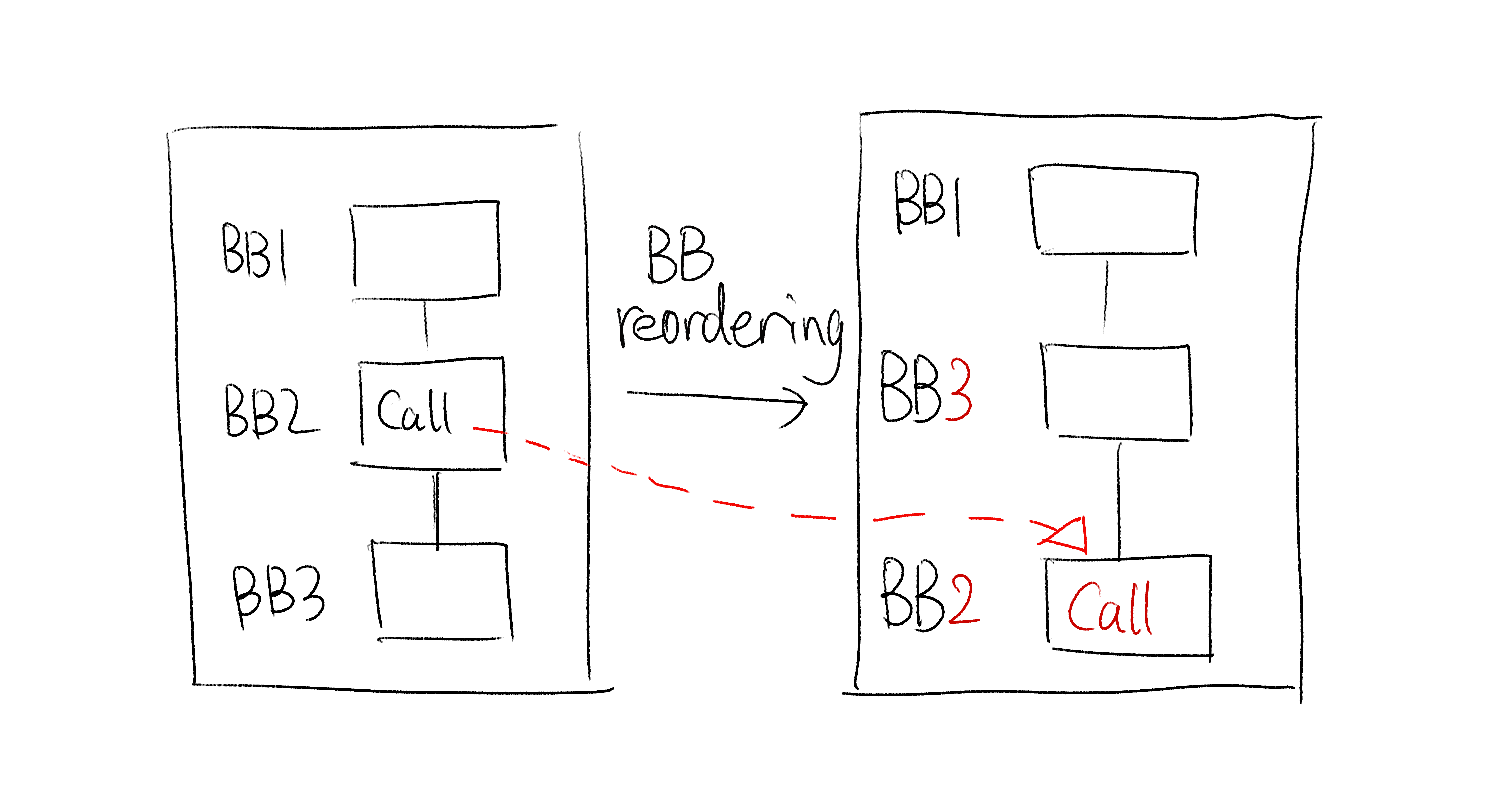 BB1
BB2 Call
BB3
BB
reordering
BB1
BB3
BB2 Call